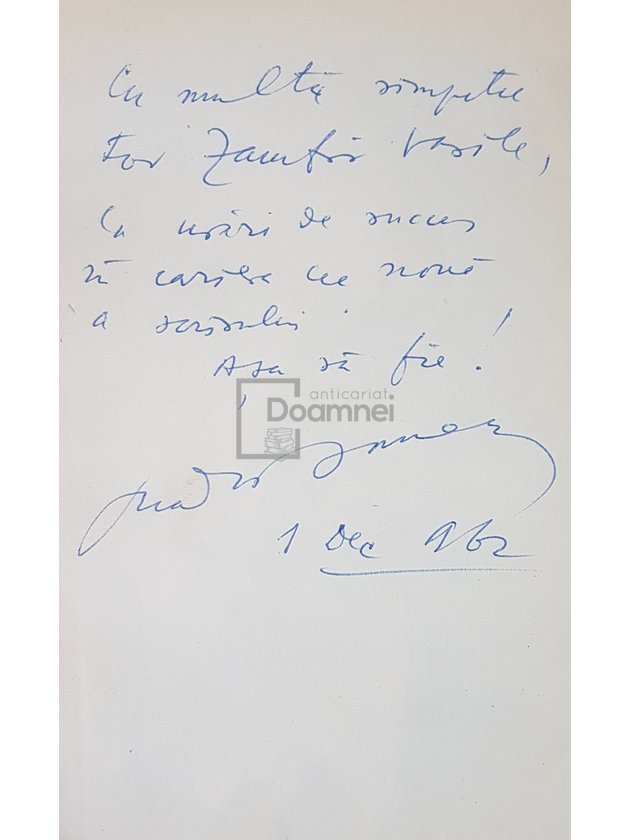 Cu multă simpatie
Tov Zamfir Vasile,
Cu urări de succes
în cariera cea nouă
a scrisului
Așa să fie!
anticariat
Doamnei
1 Dec 962